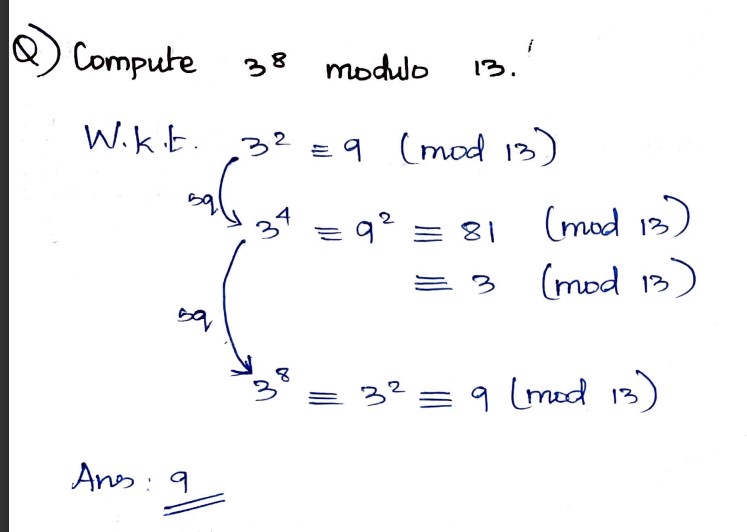 Q) Compute 3⁸ modulo 13.
W.k.t. 3² ≡ 9 (mod 13)
sq
3⁴ ≡ 9² ≡ 81 (mod 13)
≡ 3 (mod 13)
sq
3⁸ ≡ 3² ≡ 9 (mod 13)
Ans: 9